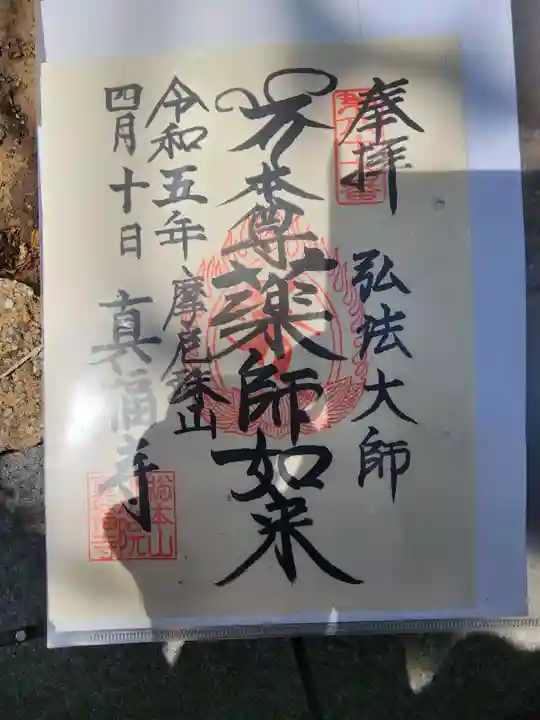 奉拝　弘法大師
本尊薬師如来
摩尼珠山
真福寺
令和五年
四月十日
総本山
院